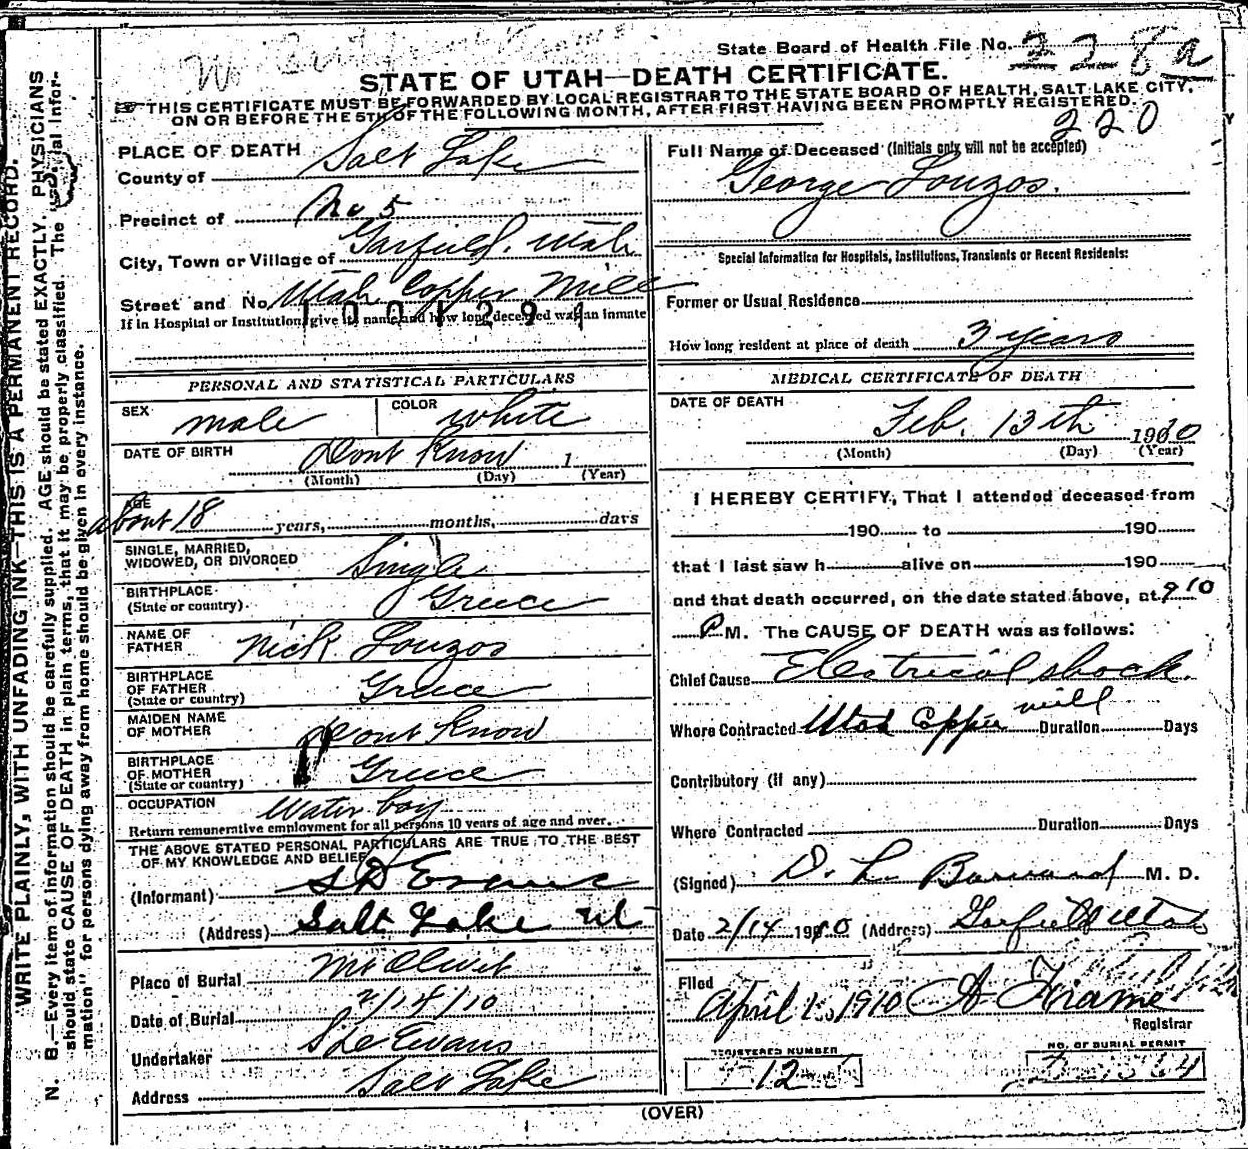 State Board of Health File No. 228a
STATE OF UTAH—DEATH CERTIFICATE.
THIS CERTIFICATE MUST BE FORWARDED BY LOCAL REGISTRAR TO THE STATE BOARD OF HEALTH, SALT LAKE CITY,
ON OR BEFORE THE 5TH OF THE FOLLOWING MONTH, AFTER FIRST HAVING BEEN PROMPTLY REGISTERED.
220
PLACE OF DEATH
County of Salt Lake
Precinct of No 5
City, Town or Village of Garfield. Utah
Street and No Utah Copper Mill
If in Hospital or Institution, give its name and how long deceased was an inmate
PERSONAL AND STATISTICAL PARTICULARS
SEX male COLOR white
DATE OF BIRTH Dont Know 1
(Month) (Day) (Year)
AGE
about 18 years, months, days
SINGLE, MARRIED,
WIDOWED, OR DIVORCED Single
BIRTHPLACE
(State or country) Greece
NAME OF
FATHER Nick Louzos
BIRTHPLACE
OF FATHER
(State or country) Greece
MAIDEN NAME
OF MOTHER Dont Know
BIRTHPLACE
OF MOTHER
(State or country) Greece
OCCUPATION Water boy
Return remunerative employment for all persons 10 years of age and over.
THE ABOVE STATED PERSONAL PARTICULARS ARE TRUE TO THE BEST
OF MY KNOWLEDGE AND BELIEF
(Informant) S D Evans
(Address) Salt Lake Ut
Place of Burial Mt Olivet
Date of Burial
Undertaker S D Evans
Address Salt Lake
Full Name of Deceased (Initials only will not be accepted)
George Louzos.
Special Information for Hospitals, Institutions, Transients or Recent Residents:
Former or Usual Residence
How long resident at place of death 3 years
MEDICAL CERTIFICATE OF DEATH
DATE OF DEATH
Feb. 13th 1910
(Month) (Day) (Year)
I HEREBY CERTIFY, That I attended deceased from
190 to 190
that I last saw h alive on 190
and that death occurred, on the date stated above, at 9 10
P M. The CAUSE OF DEATH was as follows:
Chief Cause Electrical shock.
Where Contracted Utah Copper mill Duration Days
Contributory (if any)
Where Contracted Duration Days
(Signed) D. L. Barnard M. D.
Date 2/14 1910 (Address) Garfield Utah
Filed
April 1. 1910 A Frame
Registrar
REGISTERED NUMBER
12
NO. OF BURIAL PERMIT
(OVER)
WRITE PLAINLY, WITH UNFADING INK—THIS IS A PERMANENT RECORD.
N. B.—Every item of information should be carefully supplied. AGE should be stated EXACTLY. PHYSICIANS
should state CAUSE OF DEATH in plain terms, that it may be properly classified. The "Special Infor-
mation" for persons dying away from home should be given in every instance.